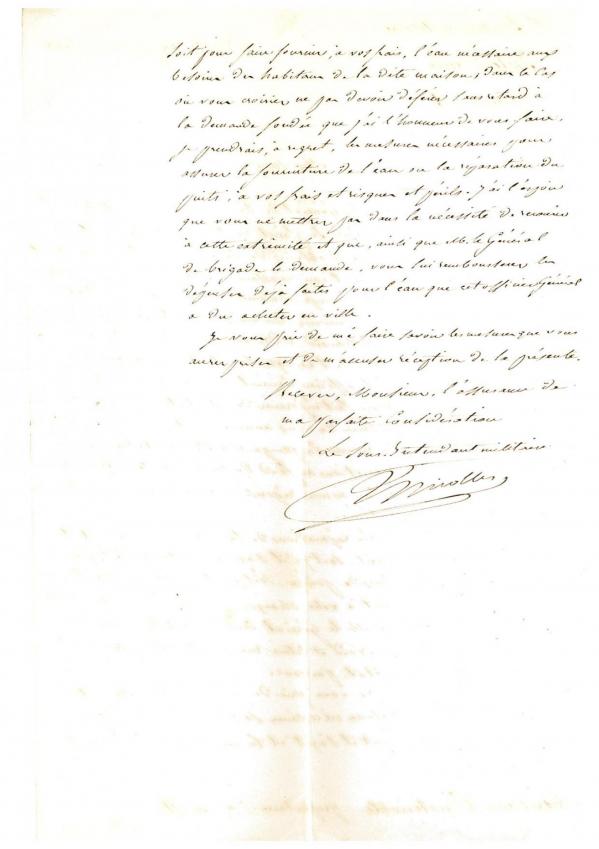 soit pour faire fournir, à vos frais, l'eau nécessaire aux
besoins des habitans de la dite maison; dans le cas
où vous croiriez ne pas devoir déférer sans retard à
la demande fondée que j'ai l'honneur de vous faire,
je prendrais, à regret, les mesures nécessaires pour
assurer la fourniture de l'eau ou la réparation du
puits, à vos frais et risques et périls. J'ai l'espoir
que vous ne mettrez pas dans la nécessité de recourir
à cette extrémité et que, ainsi que M. le Général
de brigade le demande, vous lui rembourserez les
dépenses déjà faites pour l'eau que cet officier Général
a du acheter en ville.
Je vous prie de me faire savoir les mesures que vous
aurez prises et de m'accuser réception de la présente.
Recevez, Monsieur, l'assurance de
ma parfaite considération
Le Sous-Intendant militaire